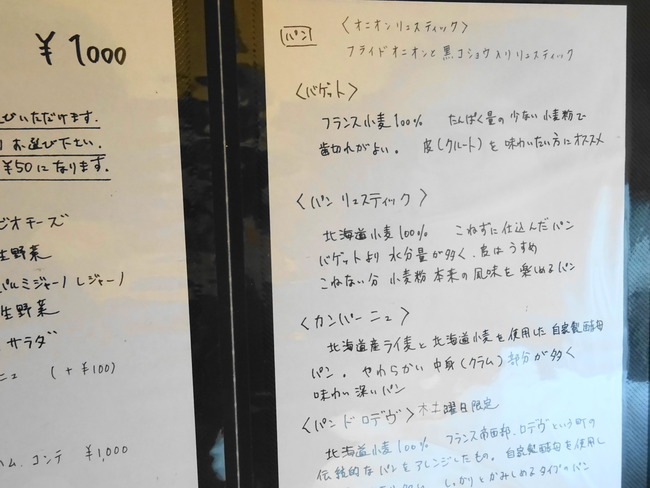 ¥1000
びいただけます.
お選び下さい.
¥50になります.
ビオチーズ
生野菜
パルミジャーノ レジャーノ
生野菜
サラダ
ニュ (+¥100)
ハム、コンテ ¥1,000
パン 〈オニオンリュスティック〉
フライドオニオンと黒コショウ入りリュスティック
〈バゲット〉
フランス小麦100% たんぱく量の少ない小麦粉で
歯切れがよい。 皮(クルート)を味わいたい方にオススメ
〈パン リュスティック〉
北海道小麦100% こねずに仕込んだパン
バゲットより水分量が多く、皮はうすめ
こねない分 小麦粉本来の風味を楽しめるパン
〈カンパーニュ〉
北海道産ライ麦と北海道小麦を使用した自家製酵母
パン。やわらかい中身(クラム)部分が多く
味わい深いパン
〈パン ド ロデヴ〉木土曜日限定
北海道小麦100% フランス南西部、ロデヴという町の
伝統的なパンをアレンジしたもの。自家製酵母を使用し
しっかりとかみしめるタイプのパン